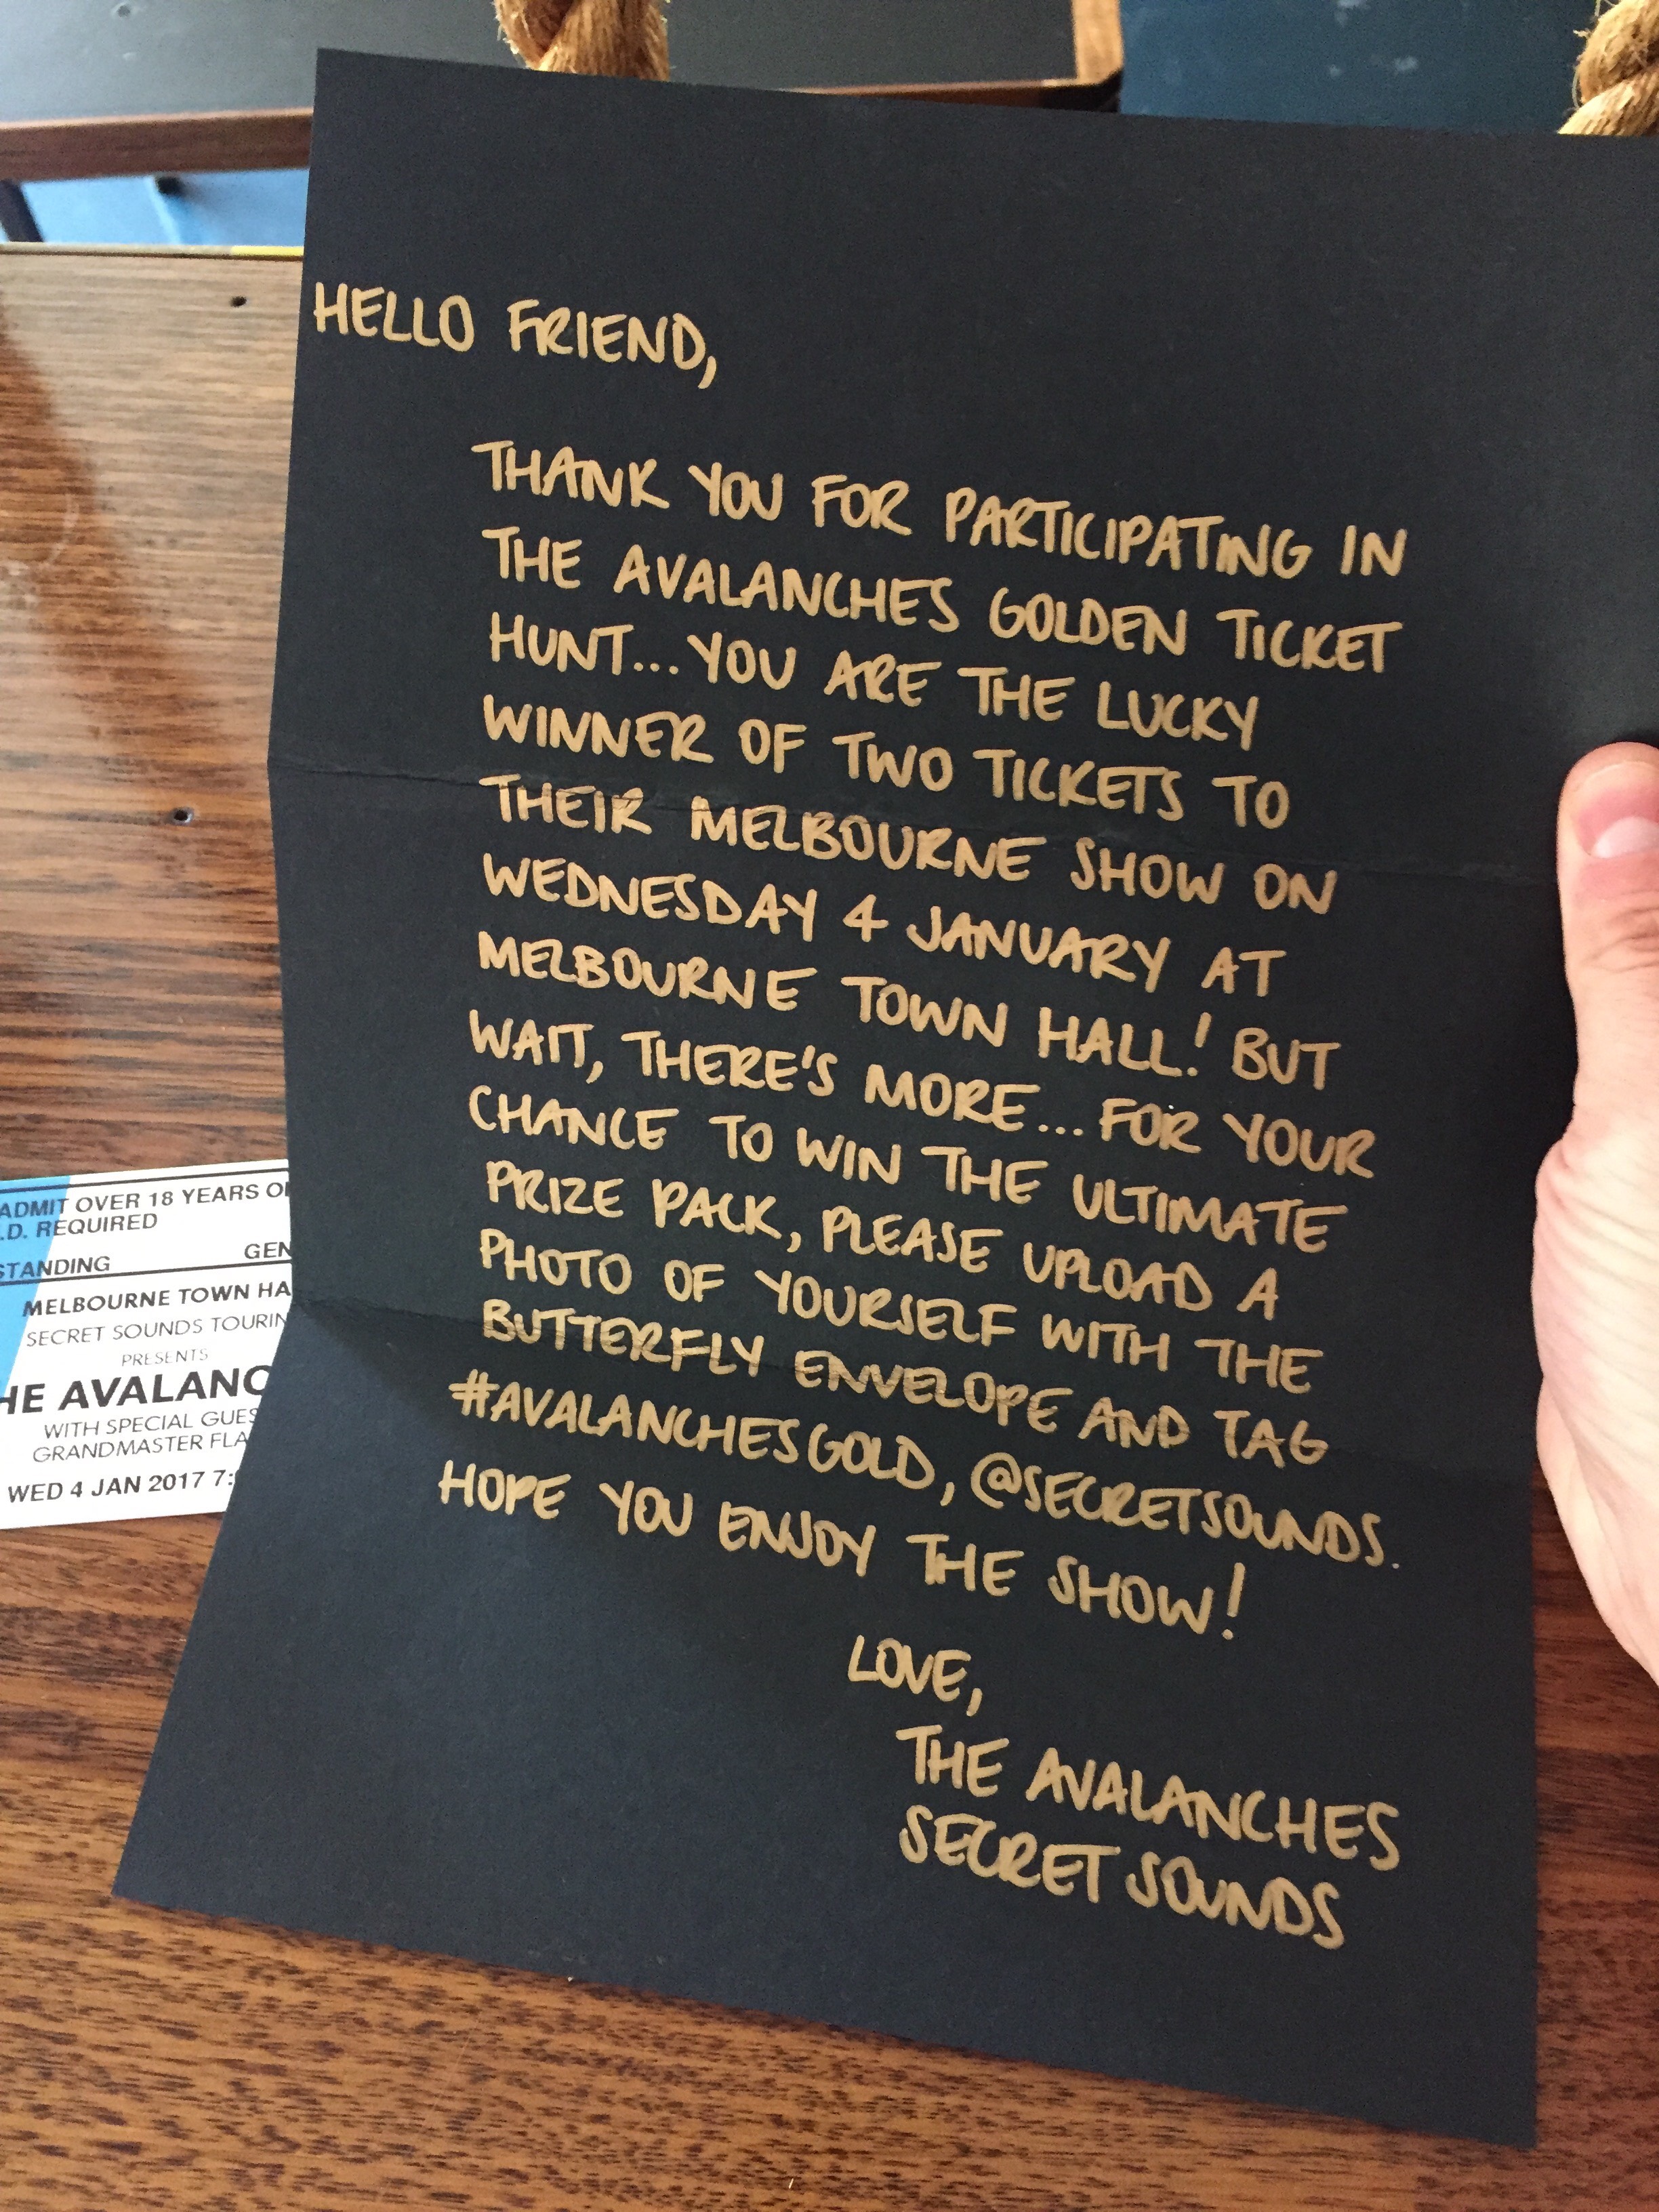 HELLO FRIEND,
THANK YOU FOR PARTICIPATING IN
THE AVALANCHES GOLDEN TICKET
HUNT... YOU ARE THE LUCKY
WINNER OF TWO TICKETS TO
THEIR MELBOURNE SHOW ON
WEDNESDAY 4 JANUARY AT
MELBOURNE TOWN HALL! BUT
WAIT, THERE'S MORE... FOR YOUR
CHANCE TO WIN THE ULTIMATE
PRIZE PACK, PLEASE UPLOAD A
PHOTO OF YOURSELF WITH THE
BUTTERFLY ENVELOPE AND TAG
#AVALANCHESGOLD, @SECRETSOUNDS.
HOPE YOU ENJOY THE SHOW!
LOVE,
THE AVALANCHES
SECRET SOUNDS
ADMIT OVER 18 YEARS
.D. REQUIRED
STANDING GEN
MELBOURNE TOWN HA
SECRET SOUNDS TOURIN
PRESENTS
HE AVALANC
WITH SPECIAL GUES
GRANDMASTER FLA
WED 4 JAN 2017 7: